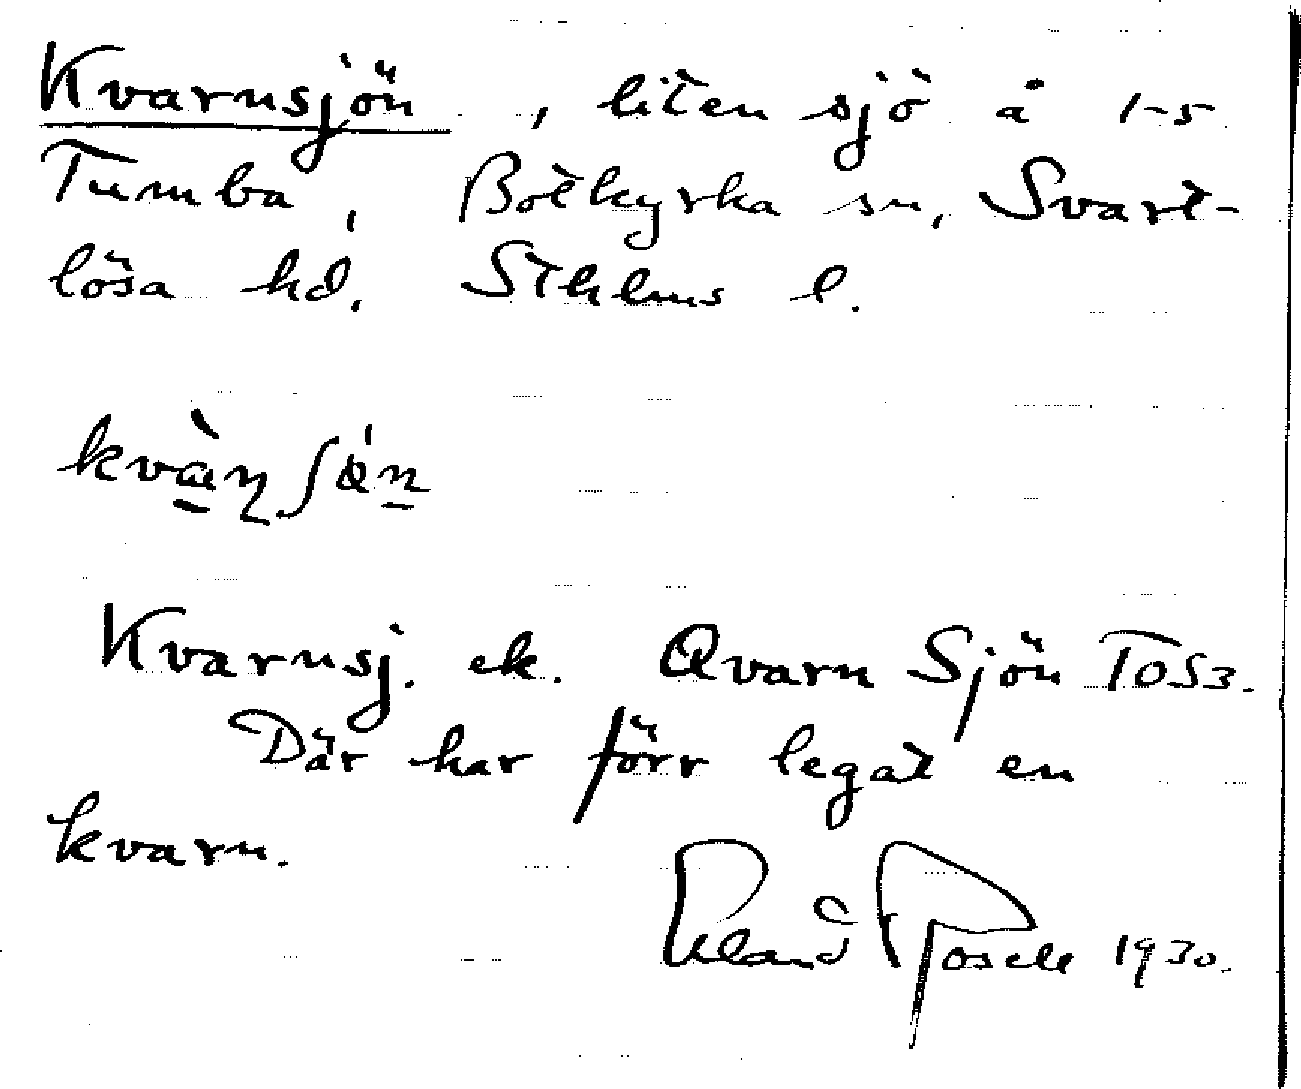 Kvarnsjön, liten sjö å 1-5
Tumba, Botkyrka sn, Svart-
lösa hd. Sthlms l.
kvàɳʃɵ́n
Kvarnsj. ek. Qvarn Sjön TOS3.
Där har förr legat en
kvarn.
1930.